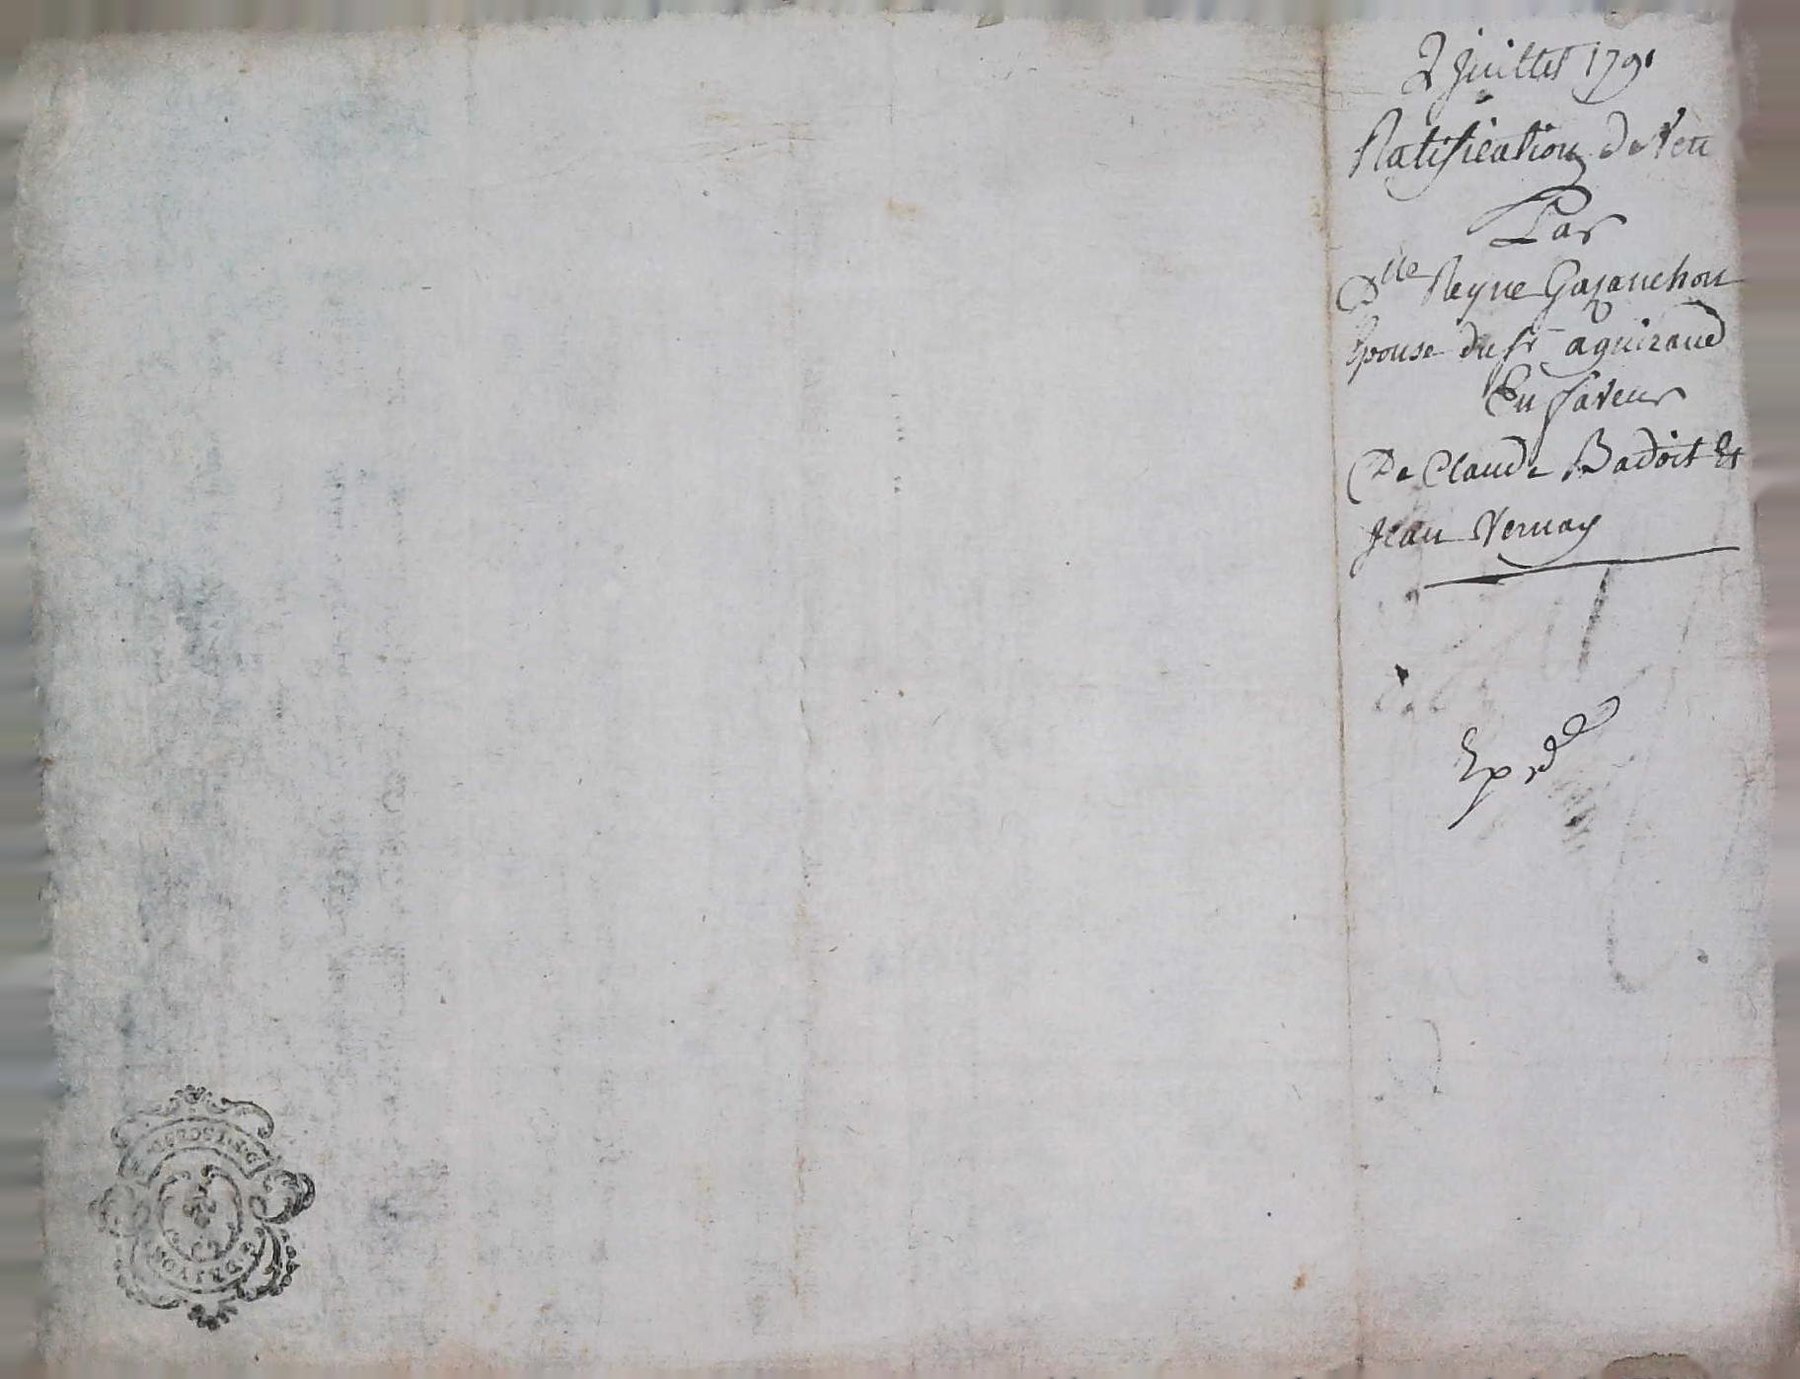 2 juillet 1791
Ratification de Ven
Par
Dlle Reyne Gazanchon
Epouse du sr aguiraud
En faveur
De Claude Badoit Et
Jean Vernay
Expdé